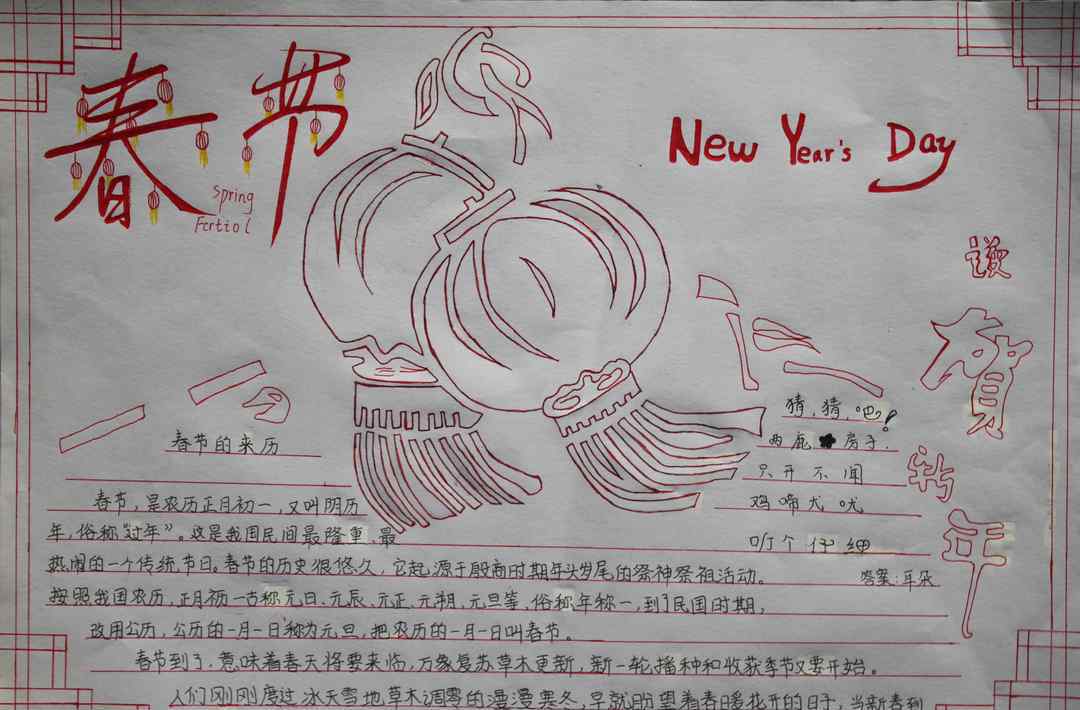 春节
Spring
Fertiol
New Year's Day
谨
贺
新
年
猜,猜,吧!
两鹿 房子.
只开不闻
鸡啼犬吠
叮个仔细
答案:耳朵
春节的来历
春节,是农历正月初一,又叫阴历
年,俗称“过年”。这是我国民间最隆重、最
热闹的一个传统节日。春节的历史很悠久,它起源于殷商时期年头岁尾的祭神祭祖活动。
按照我国农历,正月初一古称元日、元辰、元正、元朔、元旦等,俗称年称一,到了民国时期,
改用公历,公历的一月一日称为元旦,把农历的一月一日叫春节。
春节到了,意味着春天将要来临,万象复苏草木更新,新一轮播种和收获季节又要开始。
人们刚刚度过冰天雪地草木凋零的漫漫寒冬,早就盼望着春暖花开的日子,当新春到